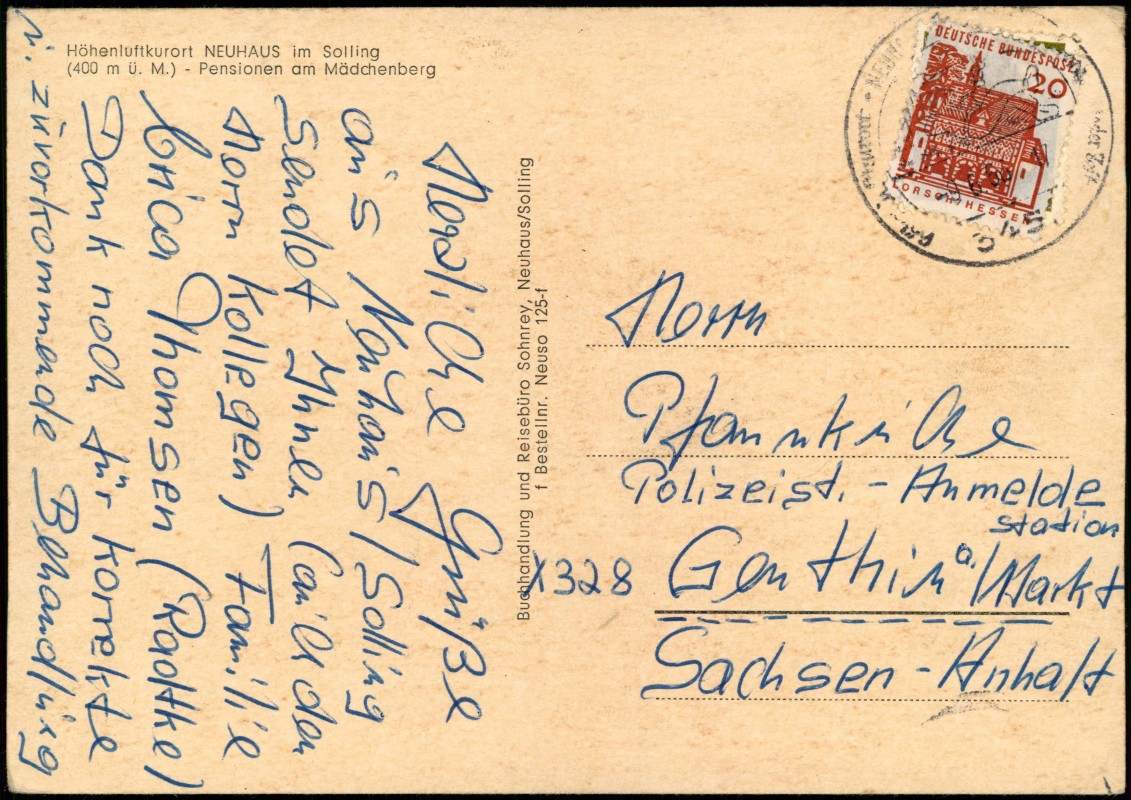 Höhenluftkurort NEUHAUS im Solling
(400 m ü. M.) - Pensionen am Mädchenberg
Herzliche Grüße
aus Neuhaus/Solling
sendet Ihnen (auch den
Herrn Kollegen) Familie
Erica Thomsen (Radtke)
Dank noch für korrekte
u. zuvorkommende Behandlung
Buchhandlung und Reisebüro Sohnrey, Neuhaus/Solling
f Bestellnr. Neuso 125-f
DEUTSCHE BUNDESPOST
20
LORSCH/HESSEN
Herrn
Pfannkuche
Polizeist.-Anmelde
station
X328 Genthin a/Markt
Sachsen-Anhalt